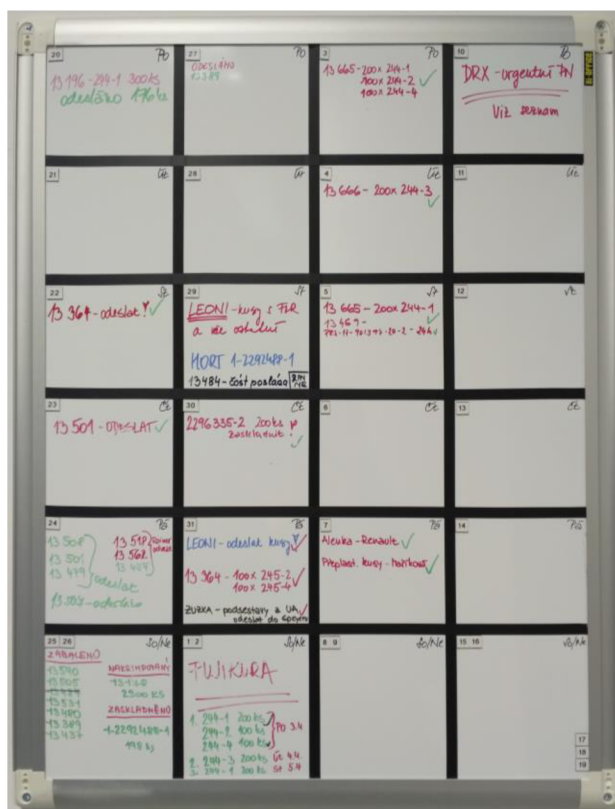 20 Po
13 196-244-1 300ks
odesláno 176ks
27 Po
ODESLÁNO
13389
3 Po
13 665-200x 244-1
100x 244-2 ✓
100x 244-4
10 Po
DRX-urgentní FN
Viz seznam
21 Út
28 Út
4 Út
13 666-200x 244-3
✓
11 Út
22 St
13 364-odeslat! ✓
29 St
LEONI-kusy s FLR
a vše ostatní
HORT 1-2292488-1
13484-část posláno
5 St
13 665-200x 244-1 ✓
13 469-
12 St
23 Čt
13 501-ODESLAT ✓
30 Čt
2296335-2 200ks
zaskladnit! ✓
6 Čt
13 Čt
24 Pá
13 508
13 501
13 479
odeslat
13 518
13 568
31 Pá
LEONI-odeslat kusy ✓
13 364-100x 245-2 ✓
100x 245-4 ✓
ZUZKA-podsestavy z UA ✓
odeslat do Spojení
7 Pá
Alenka-Renault ✓
Přeplast. kusy-Nožíková ✓
14 Pá
25 26 So/Ne
ZABALENO
13540
13505
13531
13480
13389
13437
2500 KS
ZASKLADNĚNO
1-2292488-1
198 ks
1 2 So/Ne
FUJIKURA
1. 244-1 200ks
244-2 100ks
244-4 100ks
Po 3.4
2. 244-3 200ks Út 4.4.
3. 244-1 200ks St 5.4
8 9 So/Ne
15 16 So/Ne
17
18
19